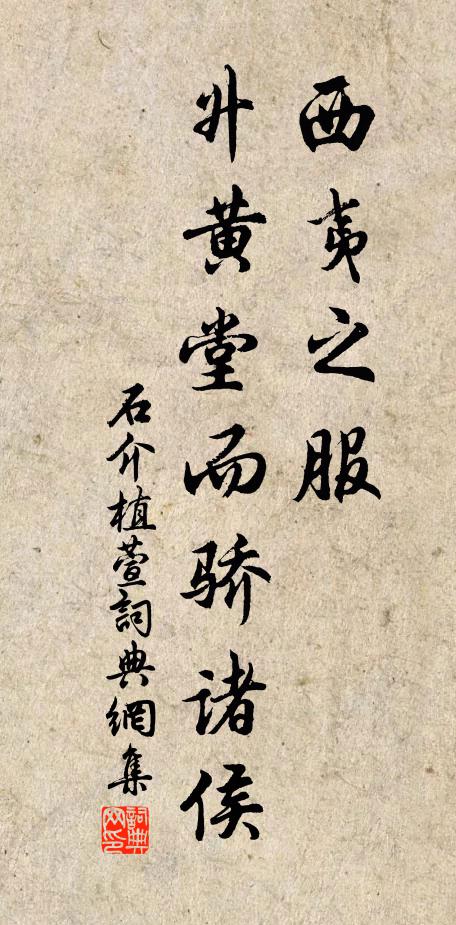 西夷之服
升黄堂而骄诸侯
石介植萱詞典網集
詞典網印